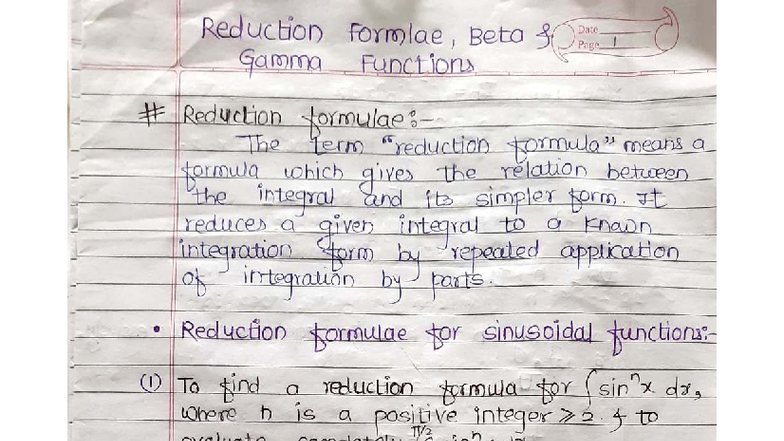 Reduction Formlae, Beta &
Gamma Functions
Date
Page 1
# Reduction formulae:-
The term "reduction formula" means a
formula which gives the relation between
the integral and its simpler form. It
reduces a given integral to a known
integration form by repeated application
of integration by parts.
• Reduction formulae for sinusoidal functions:-
(1) To find a reduction formula for ∫sinⁿx dx,
where n is a positive integer ≥ 2. & to
π/2